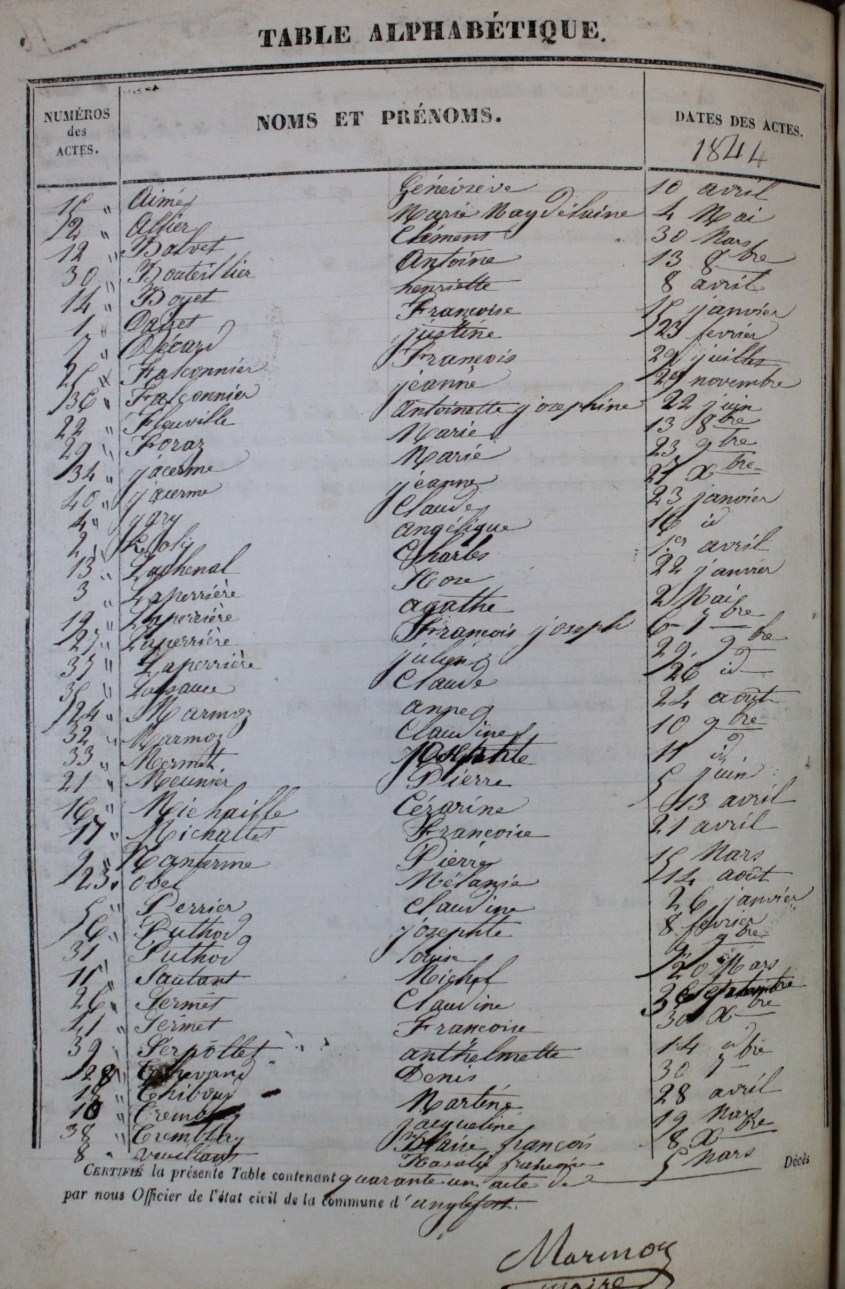 TABLE ALPHABÉTIQUE.
NUMÉROS des ACTES. NOMS ET PRÉNOMS. DATES DES ACTES.
1844
15 " Aimé Généviève 10 avril
" Allier Marie Magdelaine 4 Mai
12 " Balvet Clément 30 Mars
30 " Bouteillier Antoine 13 8bre
14 " Boget henriette 8 avril
1 " Françoise 15 janvier
7 " justine 23 fevrier
25 " Falconnier François 29 juillet
36 " Falconnier jeanne 29 novembre
22 " Fleuville Antoinette josephine 22 juin
29 " Foraz Marie 13 8bre
34 " jacerme Marie 23 9bre
40 " jacerme jeanne 27 Xbre
4 " Claude 23 janvier
2 " angélique 16 id
13 " Lachenal Charles 1er avril
3 " Laperrière Rose 22 janvier
19 " Laperrière agathe 2 Mai
27 " Laperrière François joseph 6 7bre
37 " Laperrière julien 29 9bre
35 " Claude 26 id
24 " Marmoz anne 24 août
32 " Marmoz Claudine 10 9bre
33 " Mermet josephte 11 id
21 " Meunier Pierre 5 juin
16 " Michaille Cézarine 13 avril
17 " Michallet Françoise 21 avril
9 " Nanterme Pierre 15 Mars
23 " Obel Mélanie 14 août
5 " Perrier Claudine 26 janvier
6 " Puthod josephte 8 fevrier
31 " Puthod louis 9bre
11 " Sautant Michel 20 Mars
26 " Sermet Claudine septembre
41 " Sermet Françoise 30 Xbre
39 " Serpollet anthelmette 14 id
28 " Denis 30 7bre
18 " Martine 28 avril
10 " Tremblay jacqueline 19 Mars
38 " Tremblay Claire françois 8 Xbre
8 " 5 Mars
CERTIFIÉ la présente Table contenant quarante un acte de Décès
par nous Officier de l'état civil de la commune d'anglefort.
Marmoz
maire